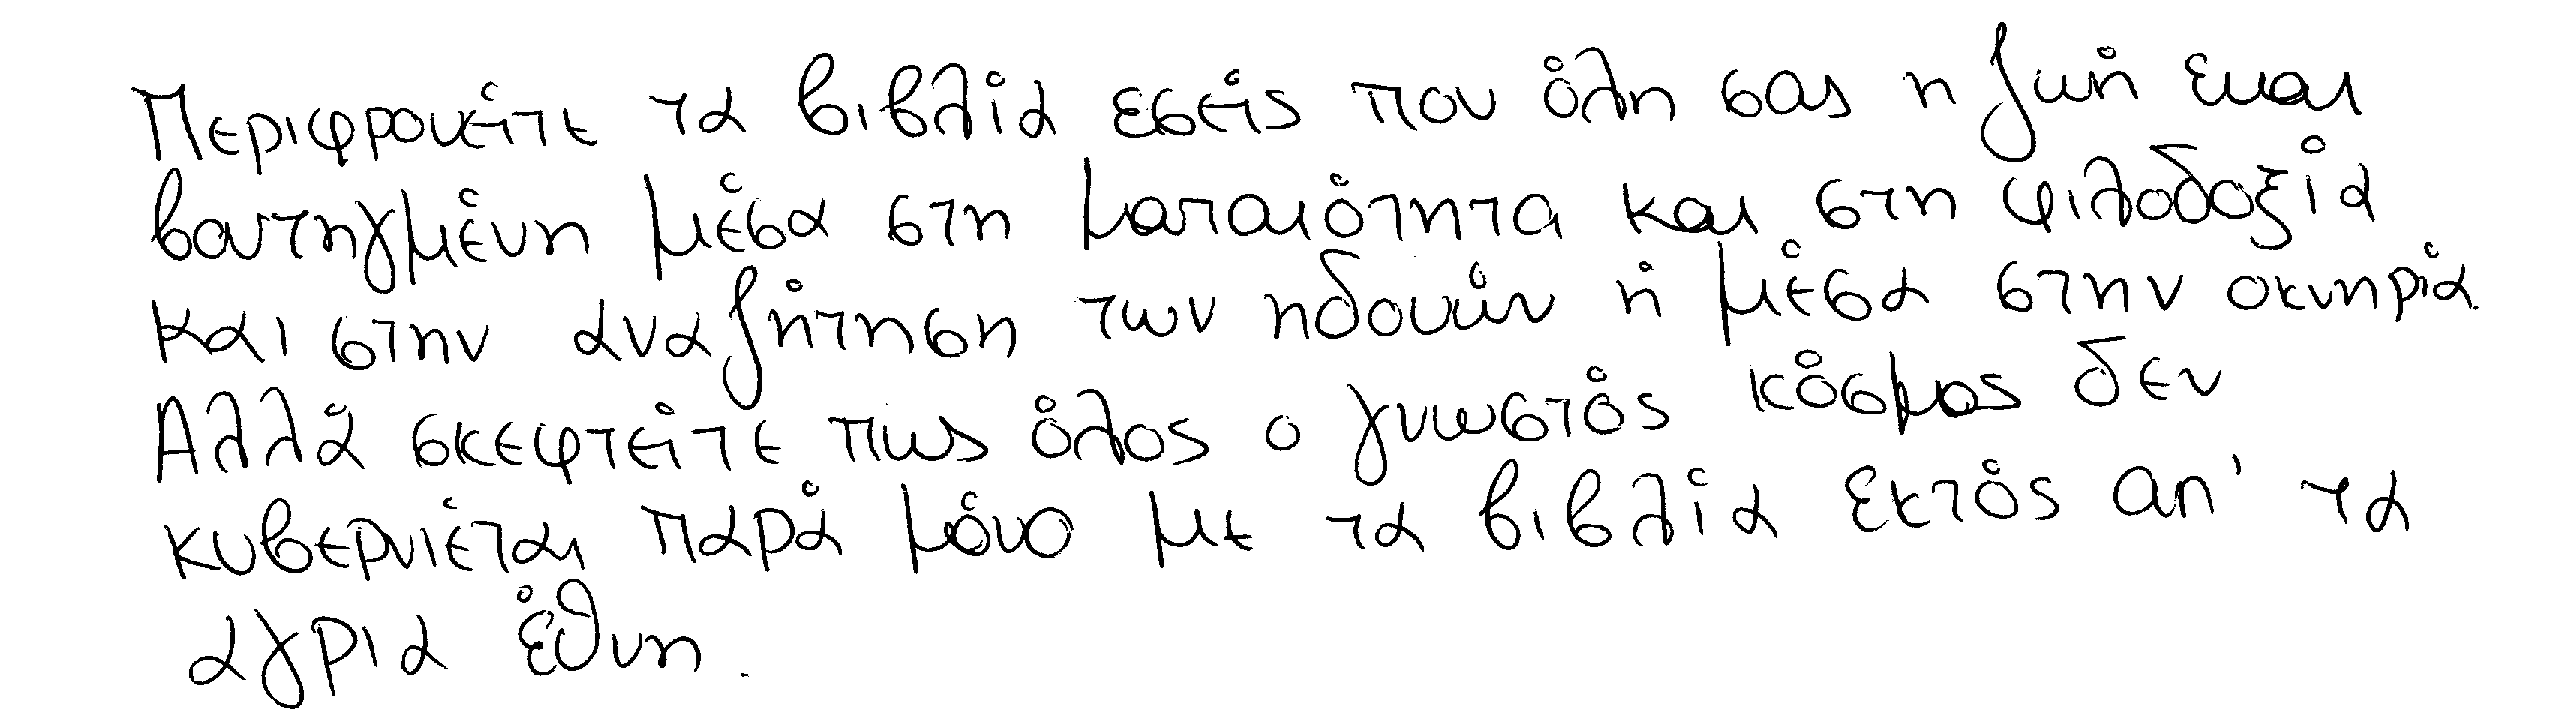 Περιφρονείτε τα βιβλία εσείς που όλη σας η ζωή ειναι
βουτηγμένη μέσα στη ματαιότητα και στη φιλοδοξία
και στην αναζήτηση των ηδονών ή μέσα στην οκνηρία.
Αλλά σκεφτείτε πως όλος ο γνωστός κόσμος δεν
κυβερνιέται παρά μόνο με τα βιβλία εκτός απ' τα
αγρια έθνη.